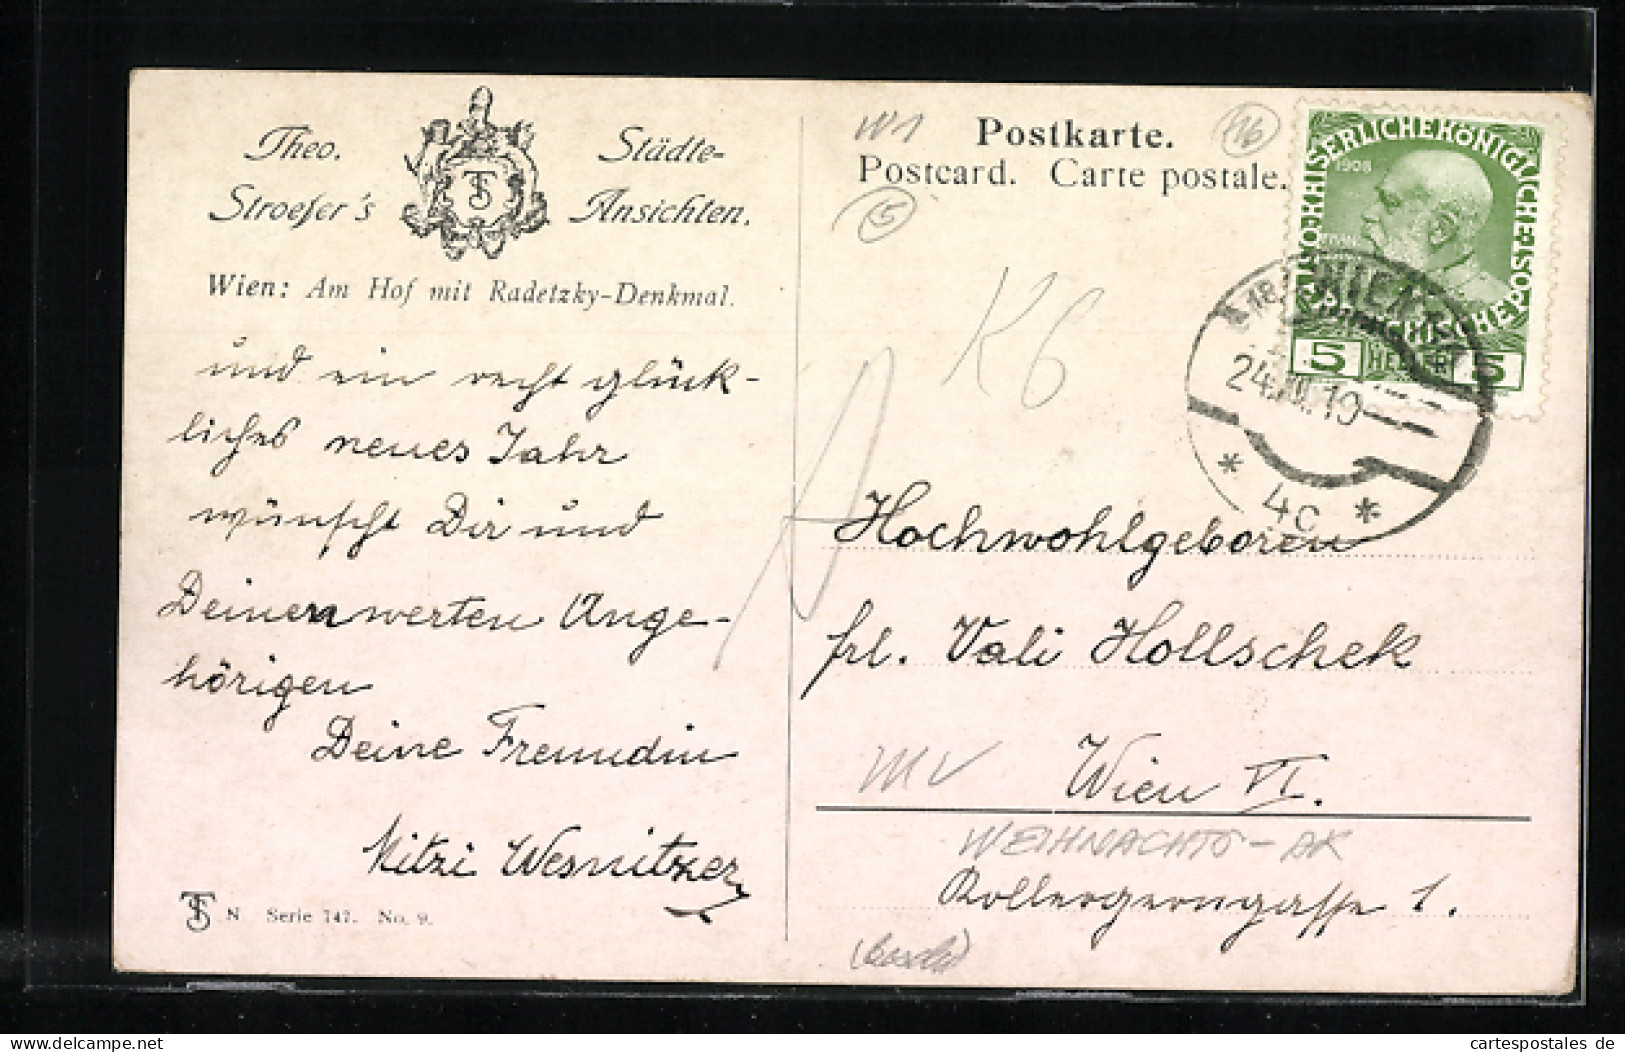 Theo.
Stroefer's
TS
Städte-
Ansichten.
Wien: Am Hof mit Radetzky-Denkmal.
und ein recht glück-
liches neues Jahr
wünscht Dir und
Deinen werten Ange-
hörigen
Deine Freundin
Mitzi Wesnitzer
TS N Serie 747. No. 9.
W1
Postkarte.
Postcard. Carte postale.
5
K6
KAISERLICHE KÖNIGLICHE
POST
1908
5 HELLER 5
WIEN
24.XII.10
* 4c *
Hochwohlgeboren
Frl. Vali Hollschek
MV
Wien VI.
WEIHNACHTS-AK
1.
oldthing.com
cartespostales de